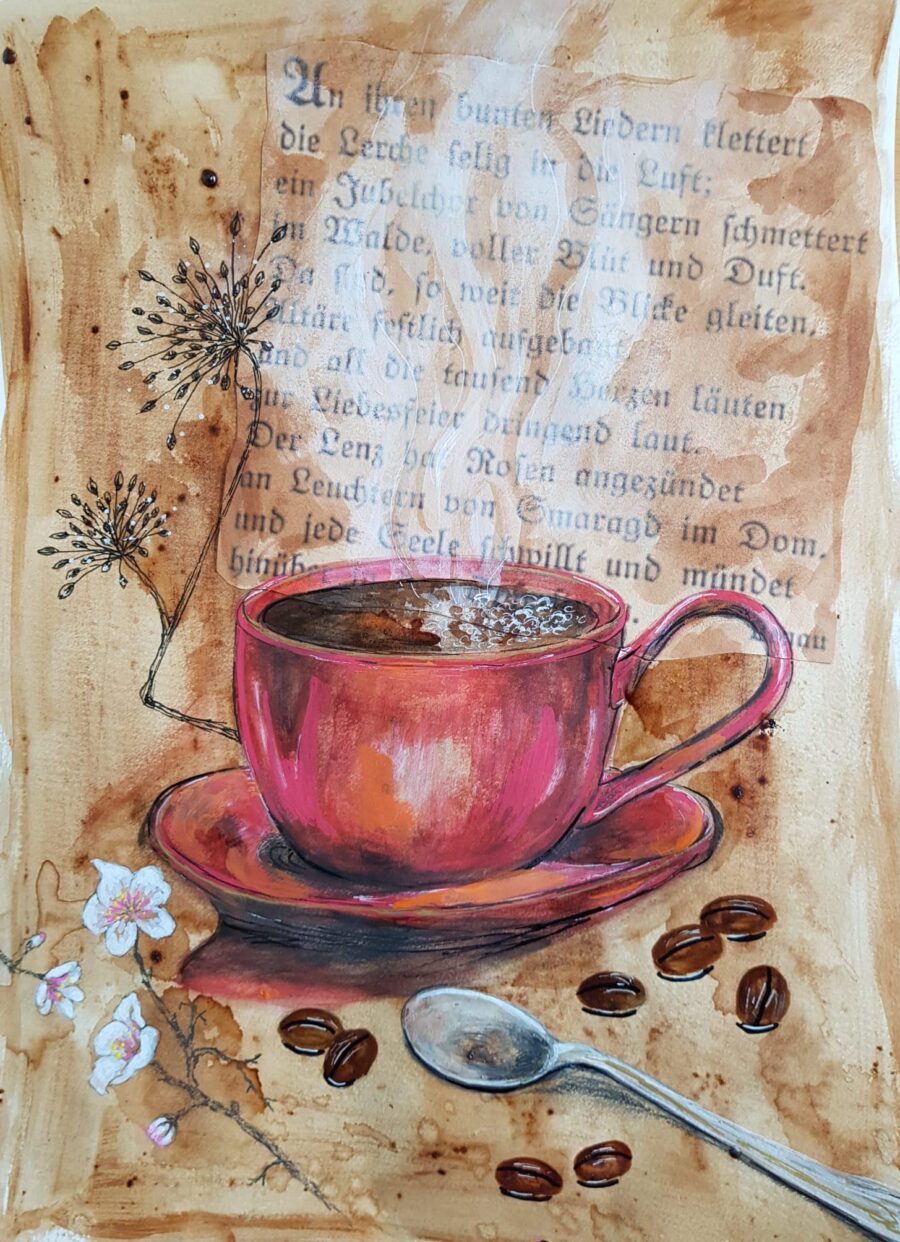 An ihren bunten Liedern klettert
die Lerche selig in die Luft;
ein Jubelchor von Sängern schmettert
im Walde, voller Blüt und Duft.
Da sind, so weit die Blicke gleiten,
Altäre festlich aufgebaut,
und all die tausend Herzen läuten
zur Liebesfeier dringend laut.
Der Lenz hat Rosen angezündet
an Leuchtern von Smaragd im Dom,
und jede Seele schwillt und mündet
hinüber